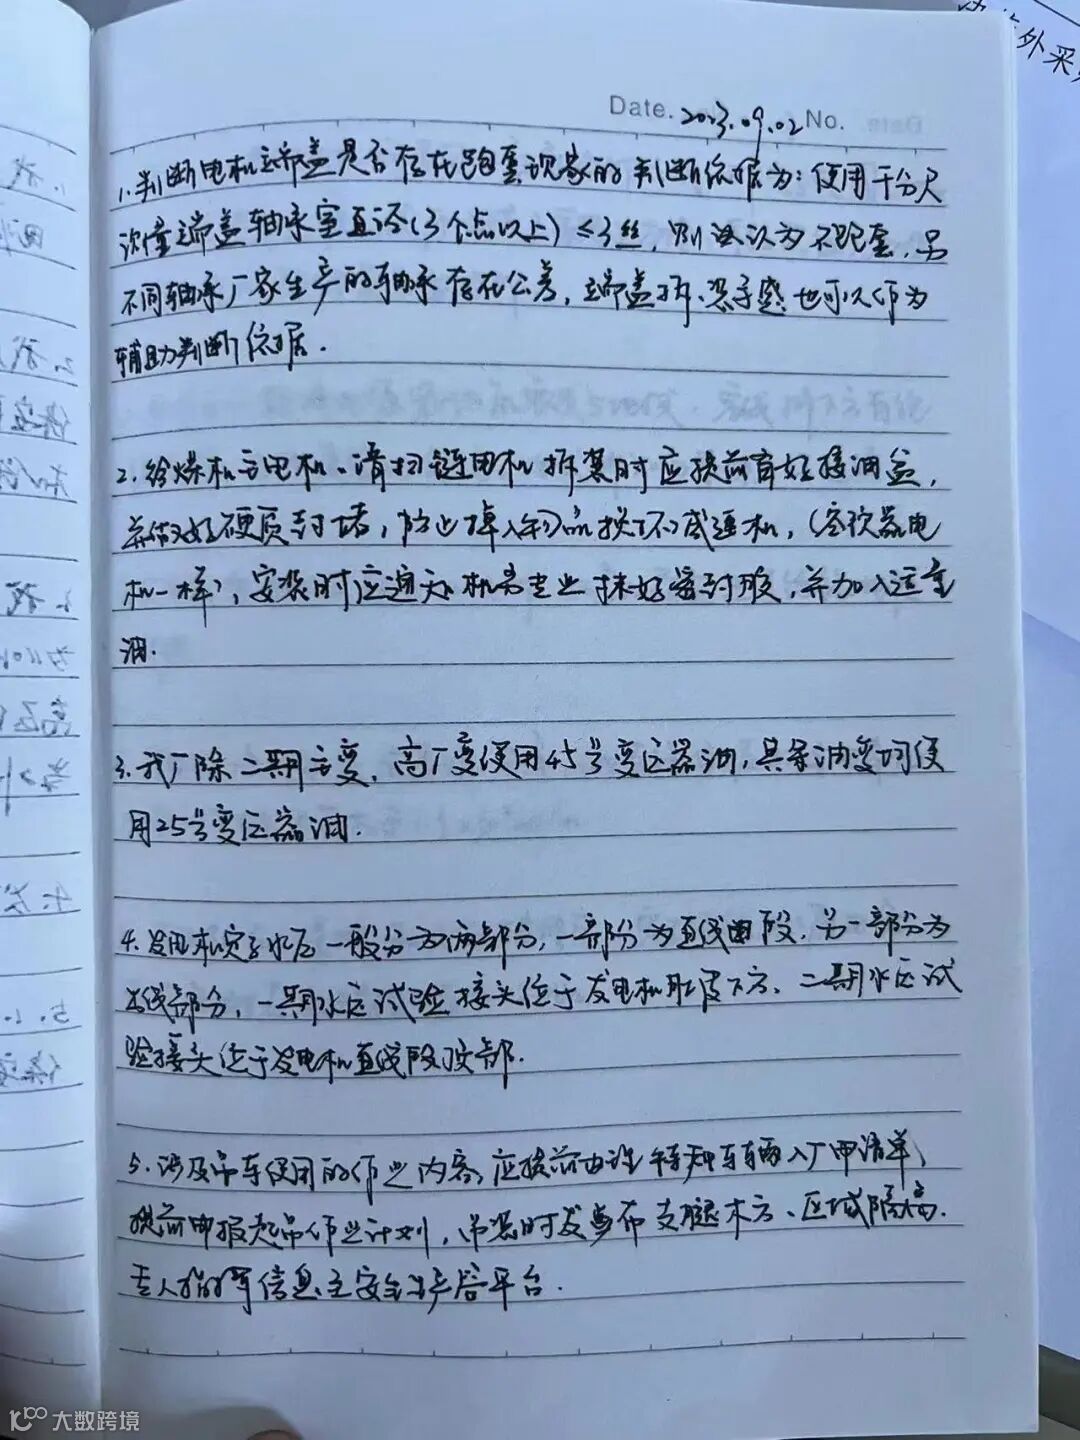 外采
Date. 2023.09.02 No.
1.判断电机端盖是否存在跑套现象的判断依据为:使用千分尺
测量端盖轴承室直径(3个点以上)≤3丝,则认为不跑套,另
不同轴承厂家生产的轴承存在公差,端盖拆、装手感也可以作为
辅助判断依据.
2.给煤机主电机、清扫链电机拆装时应提前备好接油盆,
并做好硬质封堵,防止掉入物品损坏减速机,(空预器电
机一样),安装时应通知机务专业抹好密封胶,并加入适量
油.
3.我厂除二期主变,高厂变使用45号变压器油,其余油变均使
用25号变压器油.
4.发电机定子水压一般分为两部分,一部分为直线段,另一部分为
部分,一期水压试验接头位于发电机肚皮下方、二期水压试
验接头位于发电机直线段顶部.
5.涉及吊车使用的作业内容,应提前办理特种车辆入厂申请单、
提前申报起吊作业计划,吊装时发布支腿木方、区域隔离.
专人指挥信息至安全生产平台.
大数跨境